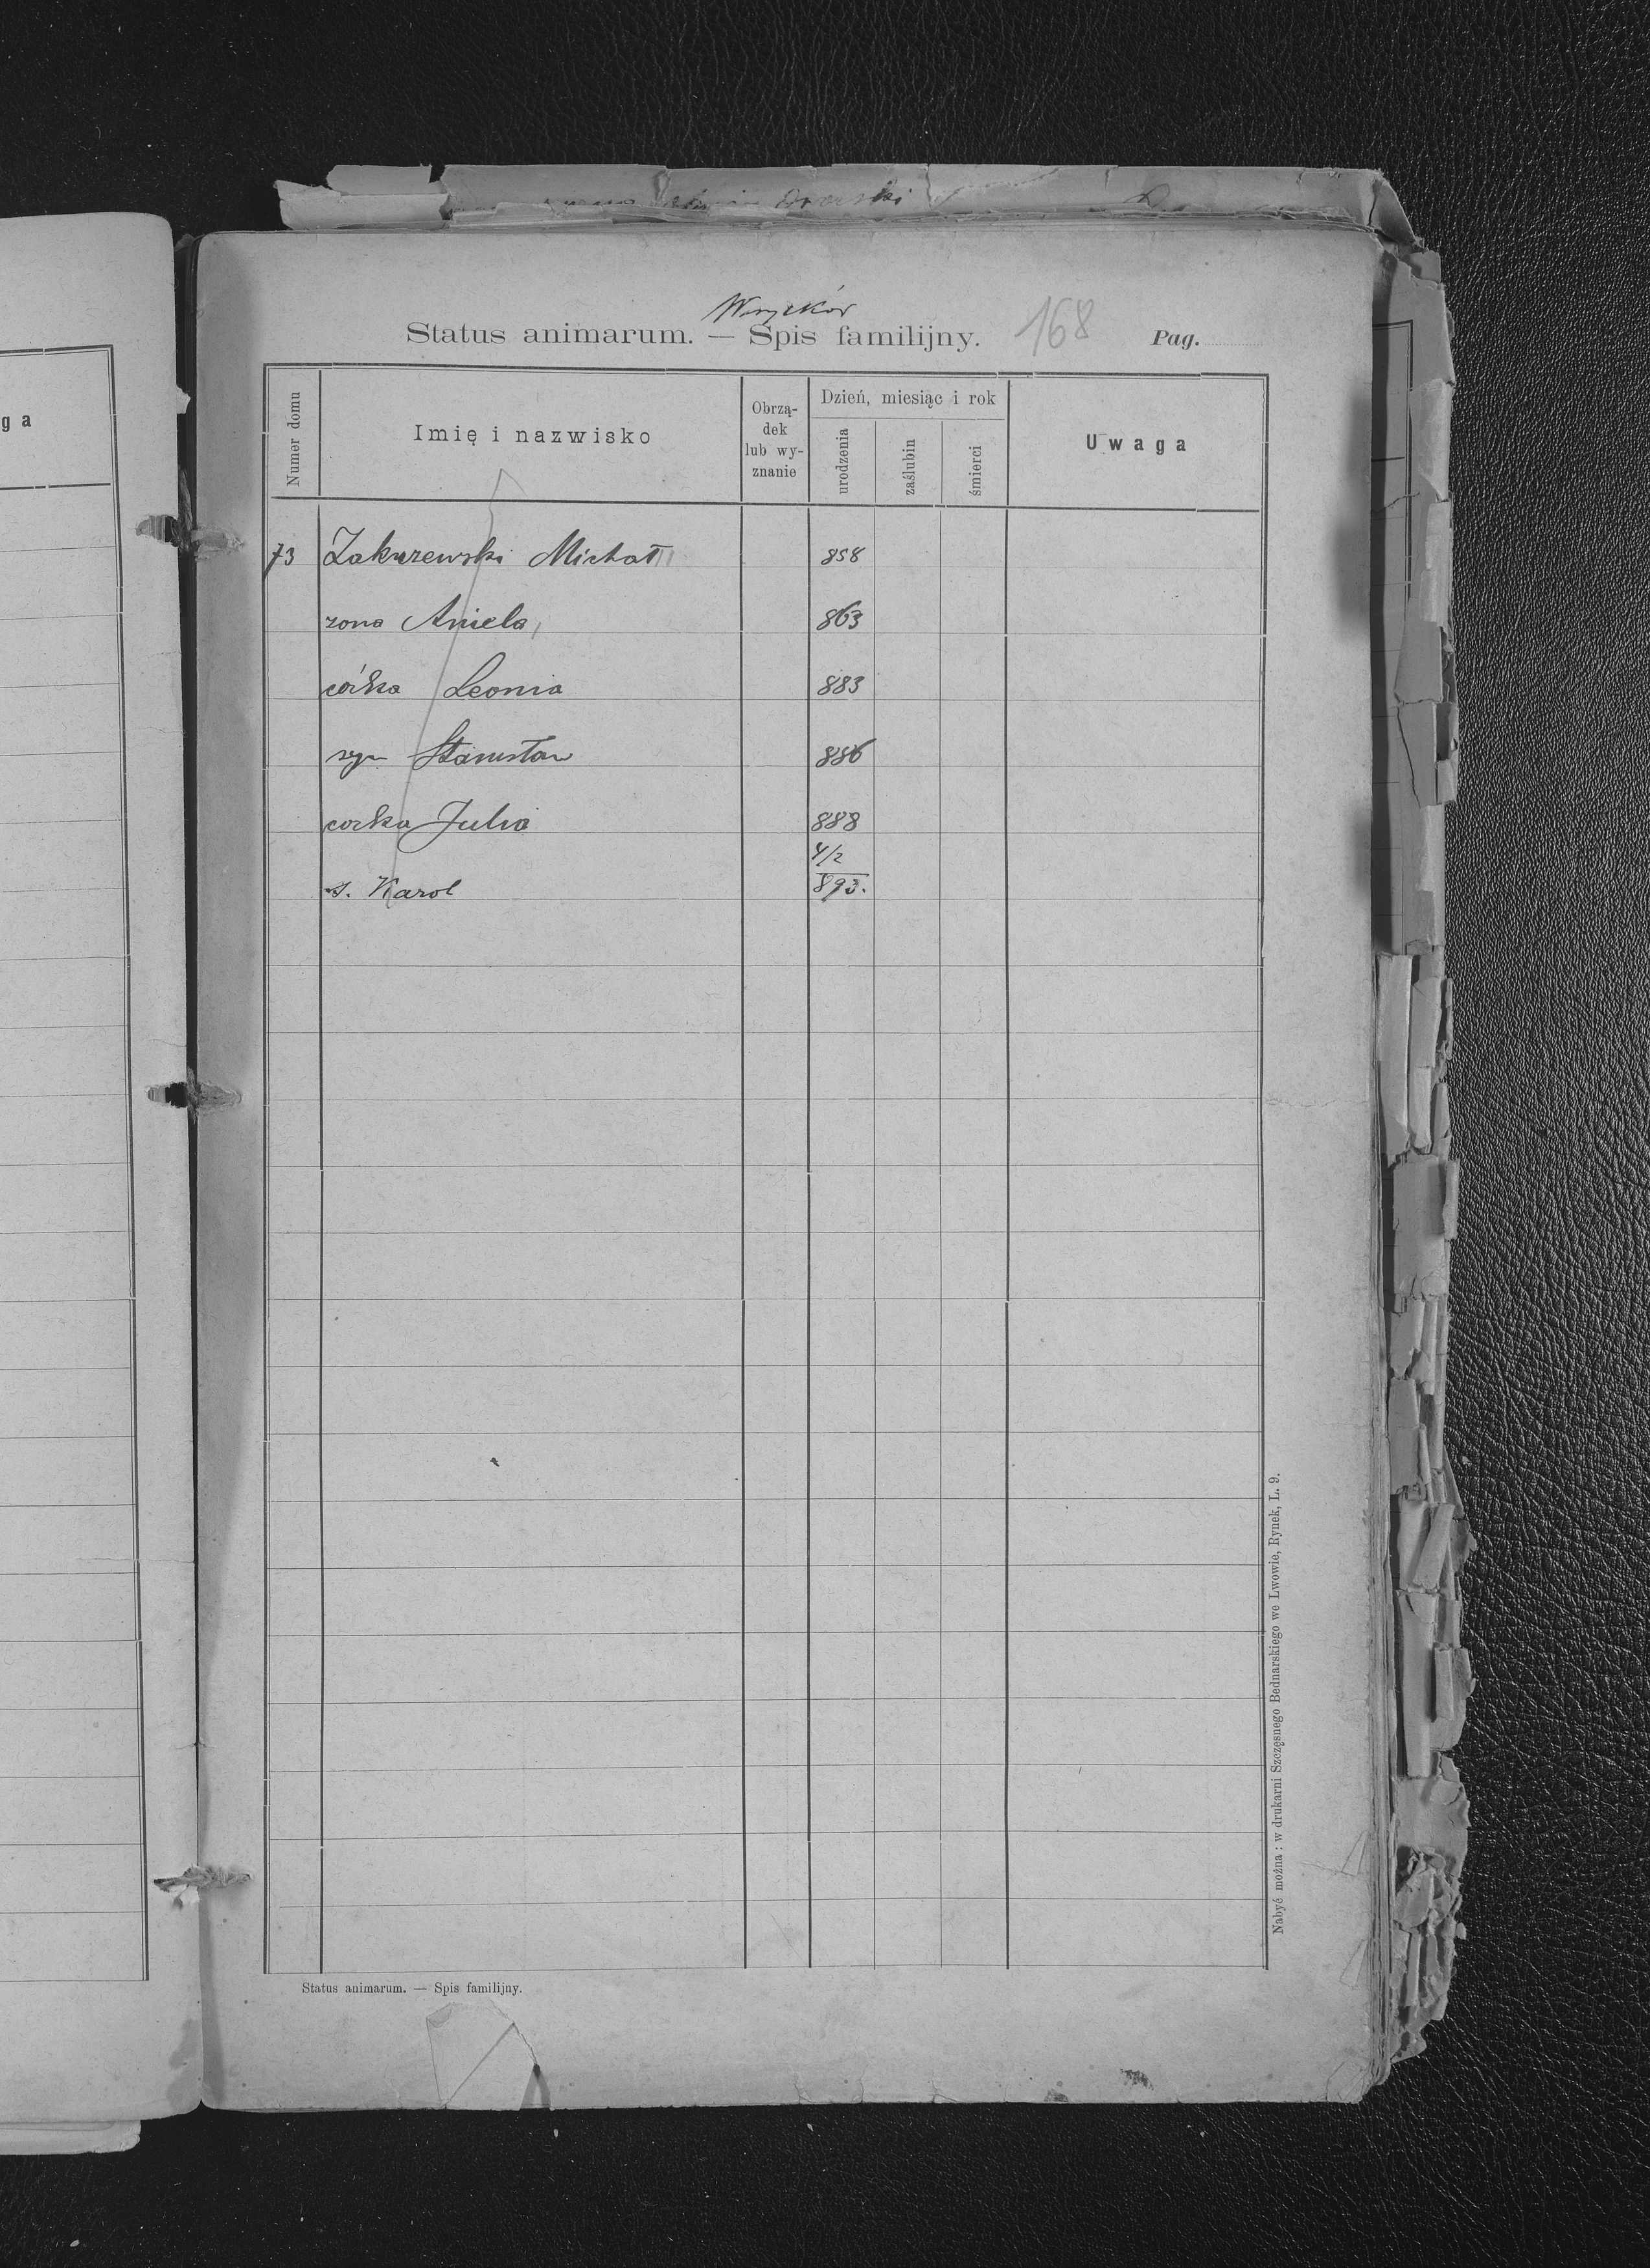 Dorski
ga
Status animarum. — Spis familijny. 168 Pag.
Numer domu
Imię i nazwisko
Obrzą-
dek
lub wy-
znanie
Dzień, miesiąc i rok
urodzenia
zaślubin
śmierci
Uwaga
73 Zakurzewski Michał 858
zona Aniela 863
córka Leonia 883
syn Stanisław 886
corka Julia 888
4/2
s. Karol 893.
Status animarum. — Spis familijny.
Nabyć można: w drukarni Szczęsnego Bednarskiego we Lwowie, Rynek, L. 9.